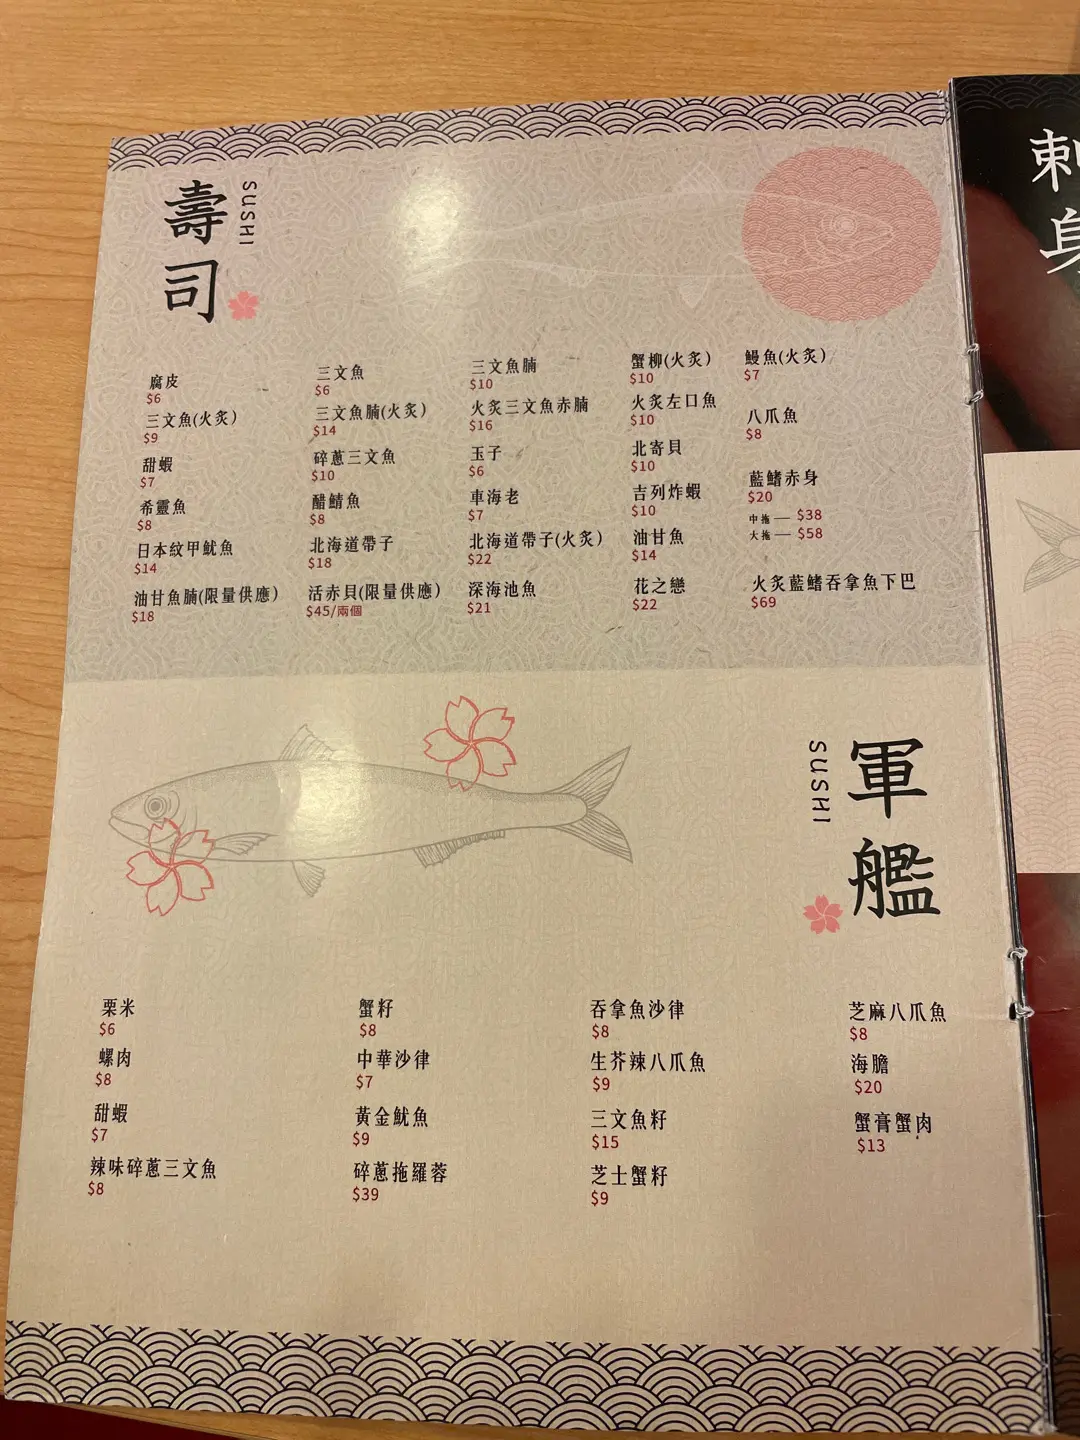 壽司
SUSHI
腐皮
$6
三文魚(火炙)
$9
甜蝦
$7
希靈魚
$8
日本紋甲魷魚
$14
油甘魚腩(限量供應)
$18
三文魚
$6
三文魚腩(火炙)
$14
碎蔥三文魚
$10
醋鯖魚
$8
北海道帶子
$18
活赤貝(限量供應)
$45/兩個
三文魚腩
$10
火炙三文魚赤腩
$16
玉子
$6
車海老
$7
北海道帶子(火炙)
$22
深海池魚
$21
蟹柳(火炙)
$10
火炙左口魚
$10
北寄貝
$10
吉列炸蝦
$10
油甘魚
$14
花之戀
$22
鰻魚(火炙)
$7
八爪魚
$8
藍鰭赤身
$20
中拖— $38
大拖— $58
火炙藍鰭吞拿魚下巴
$69
軍艦
SUSHI
粟米
$6
螺肉
$8
甜蝦
$7
辣味碎蔥三文魚
$8
蟹籽
$8
中華沙律
$7
黃金魷魚
$9
碎蔥拖羅蓉
$39
吞拿魚沙律
$8
生芥辣八爪魚
$9
三文魚籽
$15
芝士蟹籽
$9
芝麻八爪魚
$8
海膽
$20
蟹膏蟹肉
$13
刺身